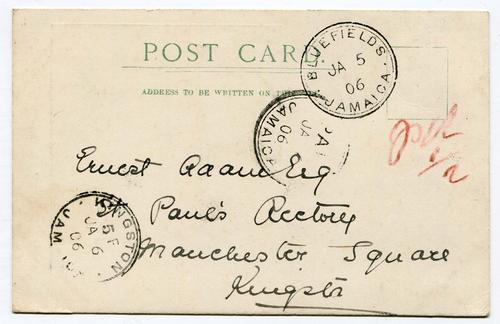 POST CARD
ADDRESS TO BE WRITTEN ON THIS
BLUEFIELDS
JA 5
06
JAMAICA
PA
JA
06
JAMAICA
Ernest Adam Esq
Paul's Rectory
Manchester Square
Kingston
KINGSTON
5P
JA 6
06
JAM
1/2